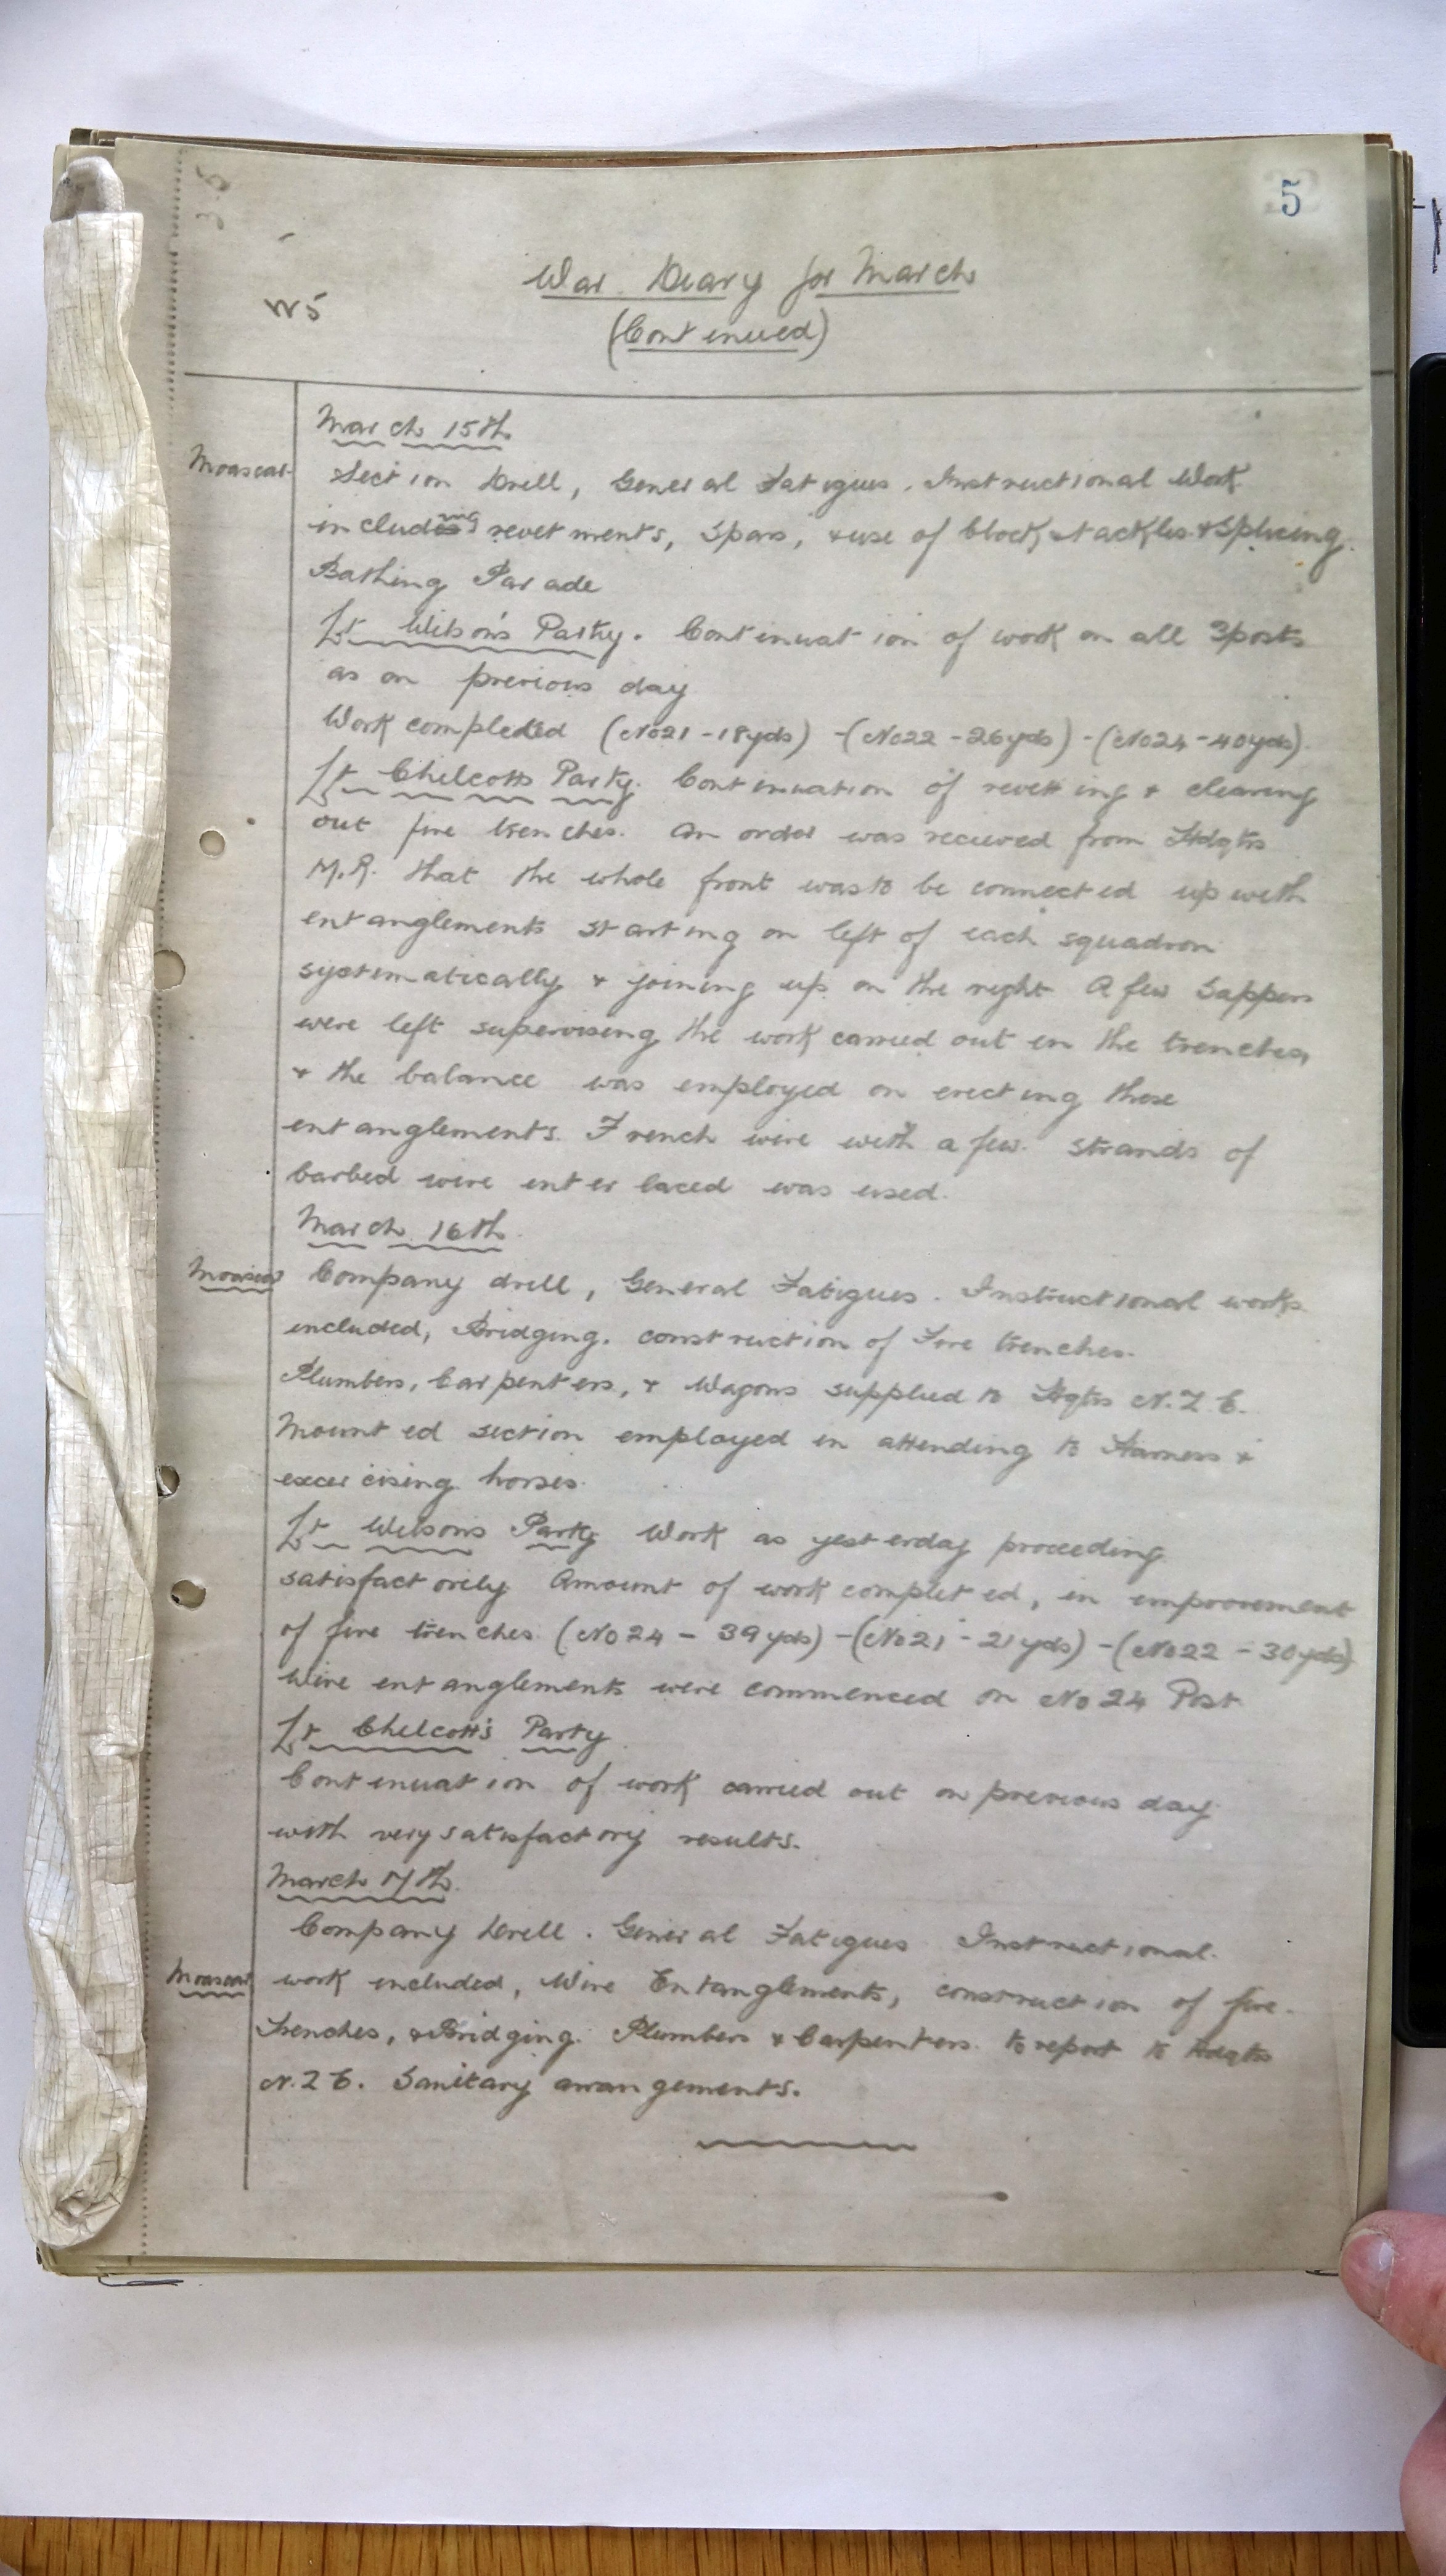 5
War Diary for March
W5
(Continued)
March 15th
Moascar
Section Drill, General Fatigues. Instructional Work
including revetments, Spars, & use of block & tackles & Splicing.
Bathing Parade
Lt Wilson's Party. Continuation of work on all 3 posts
as on previous day
Work completed (No21 - 18yds) - (No22 - 26yds) - (No24 - 40yds).
Lt Chilcotts Party. Continuation of revetting & clearing
out fire trenches. An order was recieved from Hdqtrs
M.R. that the whole front was to be connected up with
entanglements starting on left of each squadron
systematically & joining up on the right A few Sappers
were left supervising the work carried out in the trenches,
& the balance was employed on erecting these
entanglements. French wire with a few strands of
barbed wire interlaced was used.
March 16th
Moascar
Company drill, General Fatigues. Instructional works
included, Bridging. construction of Fire trenches.
Plumbers, Carpenters, & Wagons supplied to Hqtrs N.Z.E.
Mounted section employed in attending to Harness &
excercising horses.
Lt Wilsons Party Work as yesterday proceeding
satisfactorily Amount of work completed, in improvement
of fire trenches (No24 - 39yds) - (No21 - 21yds) - (No22 - 30yds)
Wire entanglements were commenced on No 24 Post
Lt Chilcott's Party
Continuation of work carried out on previous day
with very satisfactory results.
March 17th.
Company Drill. General Fatigues Instructional
Moascar
work included, Wire Entanglements, construction of fire
trenches, & Bridging. Plumbers & Carpenters to report to Hdqtrs
N.Z.E. Sanitary arrangements.